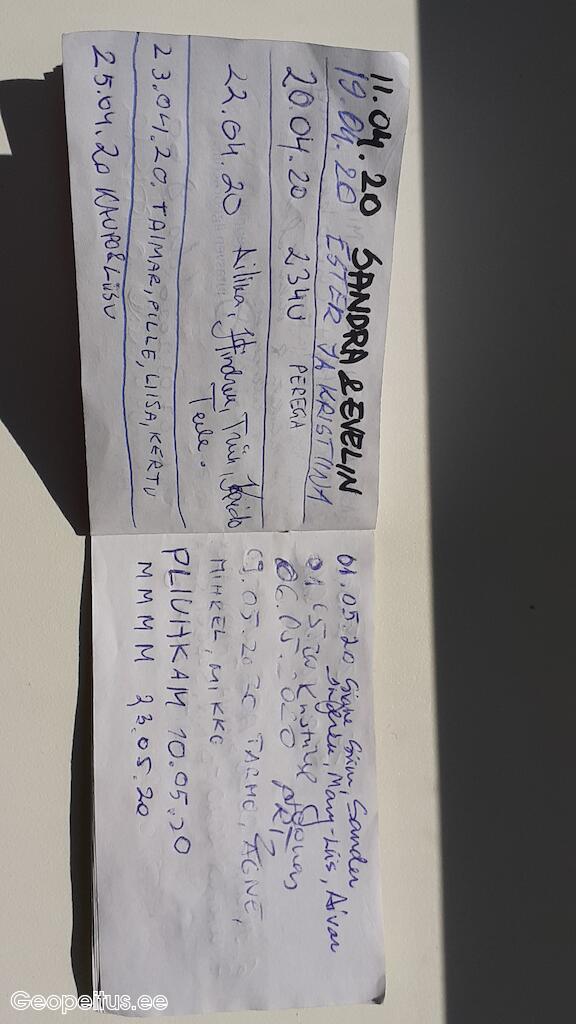 11.04.20 SANDRA & EVELIN
19.04.20 ESTER JA KRISTINA
20.04.20 234U PEREGA
22.04.20 Ailika, Hindrek, Triin, Kaido
Teele.
23.04.20. TAIMAR, PILLE, LIISA, KERTU
25.04.20 KAUPO & LIISU
01.05.20 Signe, Siim, Sander
Ingerin, Mary-Liis, Aivar
01.05.20 Kristine
06.05.2020
09.05.2020 TARMO, AGNE,
MIHKEL, MIKK
PLIUHKAM 10.05.20
MMMM 23.05.20
Geopeitus.ee